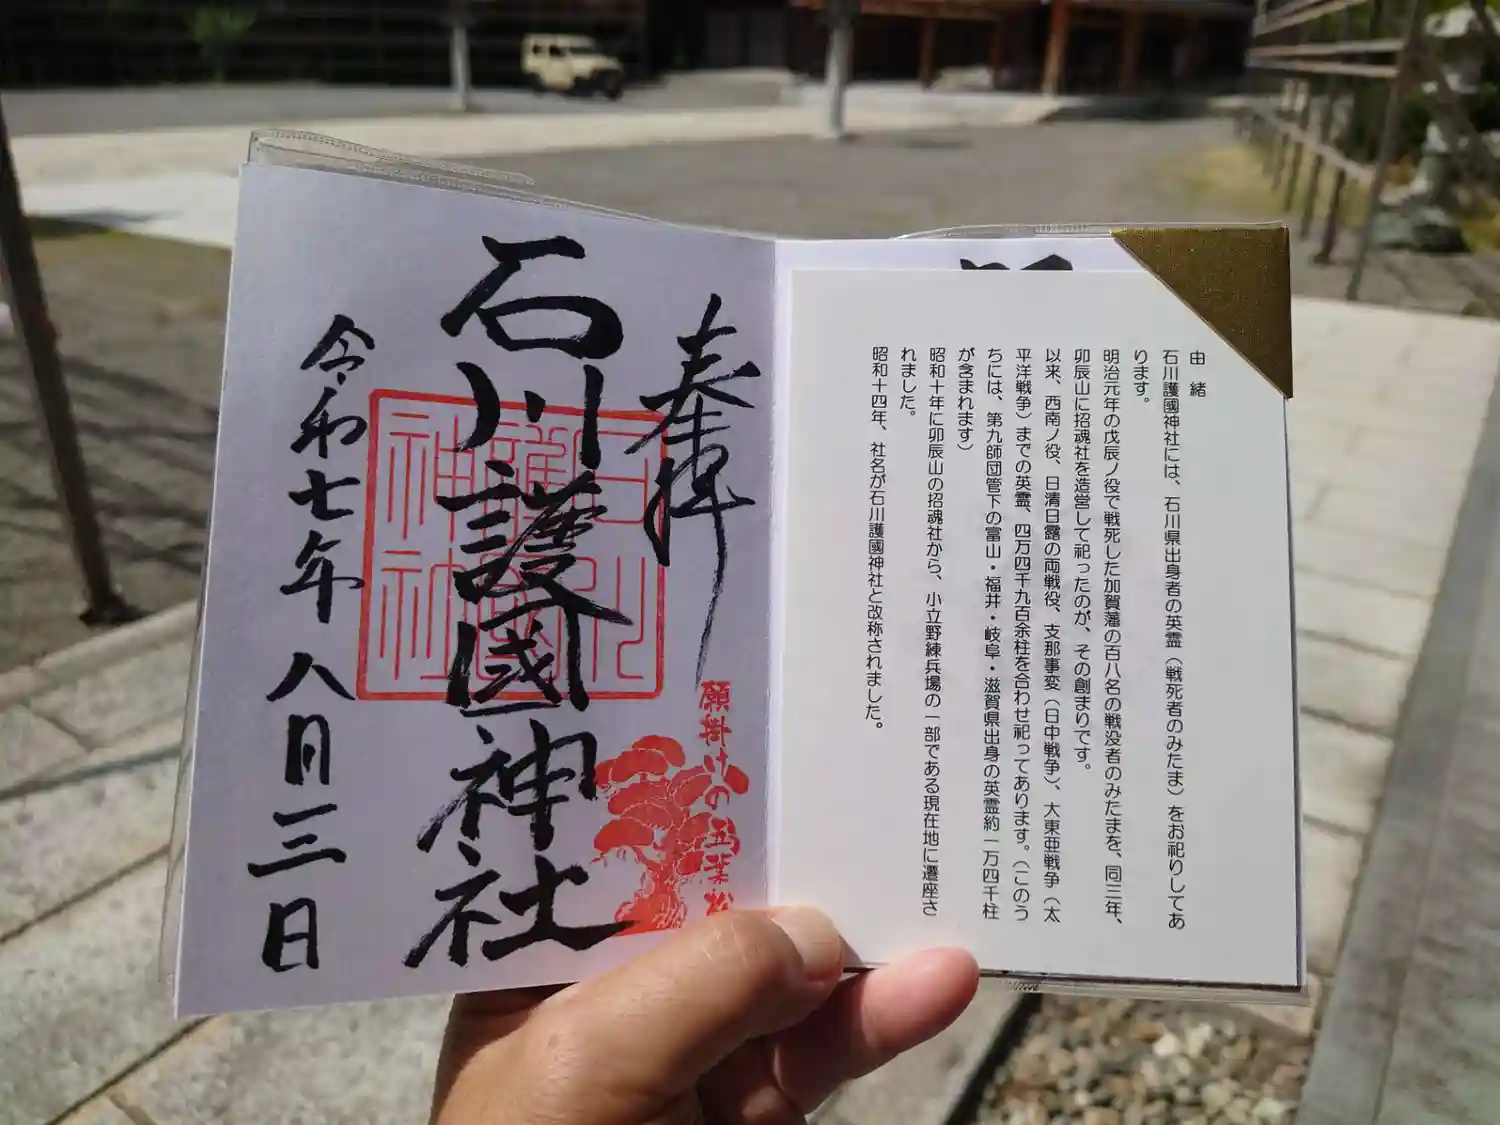 奉拝
石川護國神社
令和七年八月三日
願掛けの五葉松
由緒
石川護國神社には、石川県出身者の英霊（戦死者のみたま）をお祀りしてあ
ります。
明治元年の戊辰ノ役で戦死した加賀藩の百八名の戦没者のみたまを、同三年、
卯辰山に招魂社を造営して祀ったのが、その創まりです。
以来、西南ノ役、日清日露の両戦役、支那事変（日中戦争）、大東亜戦争（太
平洋戦争）までの英霊、四万四千九百余柱を合わせ祀ってあります。（このう
ちには、第九師団管下の富山・福井・岐阜・滋賀県出身の英霊約一万四千柱
が含まれます）
昭和十年に卯辰山の招魂社から、小立野練兵場の一部である現在地に遷座さ
れました。
昭和十四年、社名が石川護國神社と改称されました。